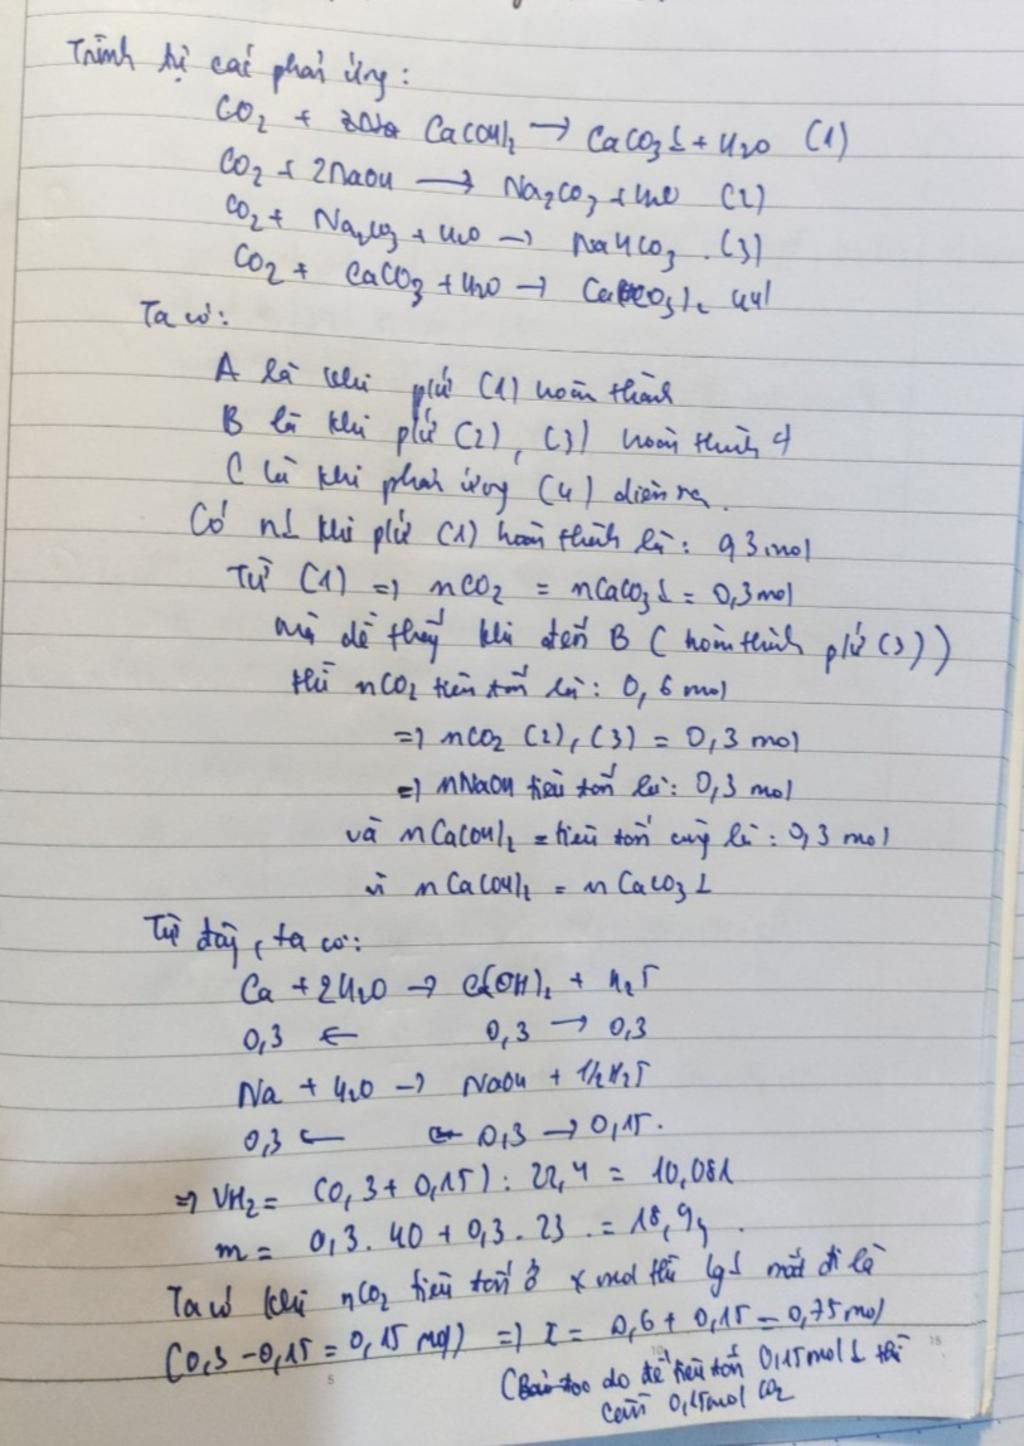 Trình tự các phản ứng:
CO2 + Ca(OH)2 → CaCO3↓ + H2O (1)
CO2 + 2NaOH → Na2CO3 + H2O (2)
CO2 + Na2CO3 + H2O → NaHCO3. (3)
CO2 + CaCO3 + H2O → Ca(HCO3)2 (4)
Ta có:
A là khi pứ (1) hoàn thành
B là khi pứ (2), (3) hoàn thành
C là khi phản ứng (4) diễn ra.
Có n↓ khi pứ (1) hoàn thành là: 0,3 mol
Từ (1) => nCO2 = nCaCO3↓ = 0,3 mol
mà dễ thấy khi đến B (hoàn thành pứ (3))
thì nCO2 tiêu tốn là: 0,6 mol
=> nCO2 (2), (3) = 0,3 mol
=> nNaOH tiêu tốn là: 0,3 mol
và nCa(OH)2 = tiêu tốn cũng là: 0,3 mol
vì nCa(OH)2 = nCaCO3↓
Từ đây, ta có:
Ca + 2H2O → Ca(OH)2 + H2↑
0,3 ← 0,3 → 0,3
Na + H2O → NaOH + 1/2H2↑
0,3 ← 0,3 → 0,15.
=> VH2 = (0,3 + 0,15) : 22,4 = 10,08l
m = 0,3 . 40 + 0,3 . 23 . = 18,9g.
Ta có khi nCO2 tiêu tốn ở x mol thì lg↓ mất đi là
(0,3 - 0,15 = 0,15 mol) => x = 0,6 + 0,15 = 0,75 mol
( do để tiêu tốn 0,15mol↓ thì
cần 0,15mol CO2